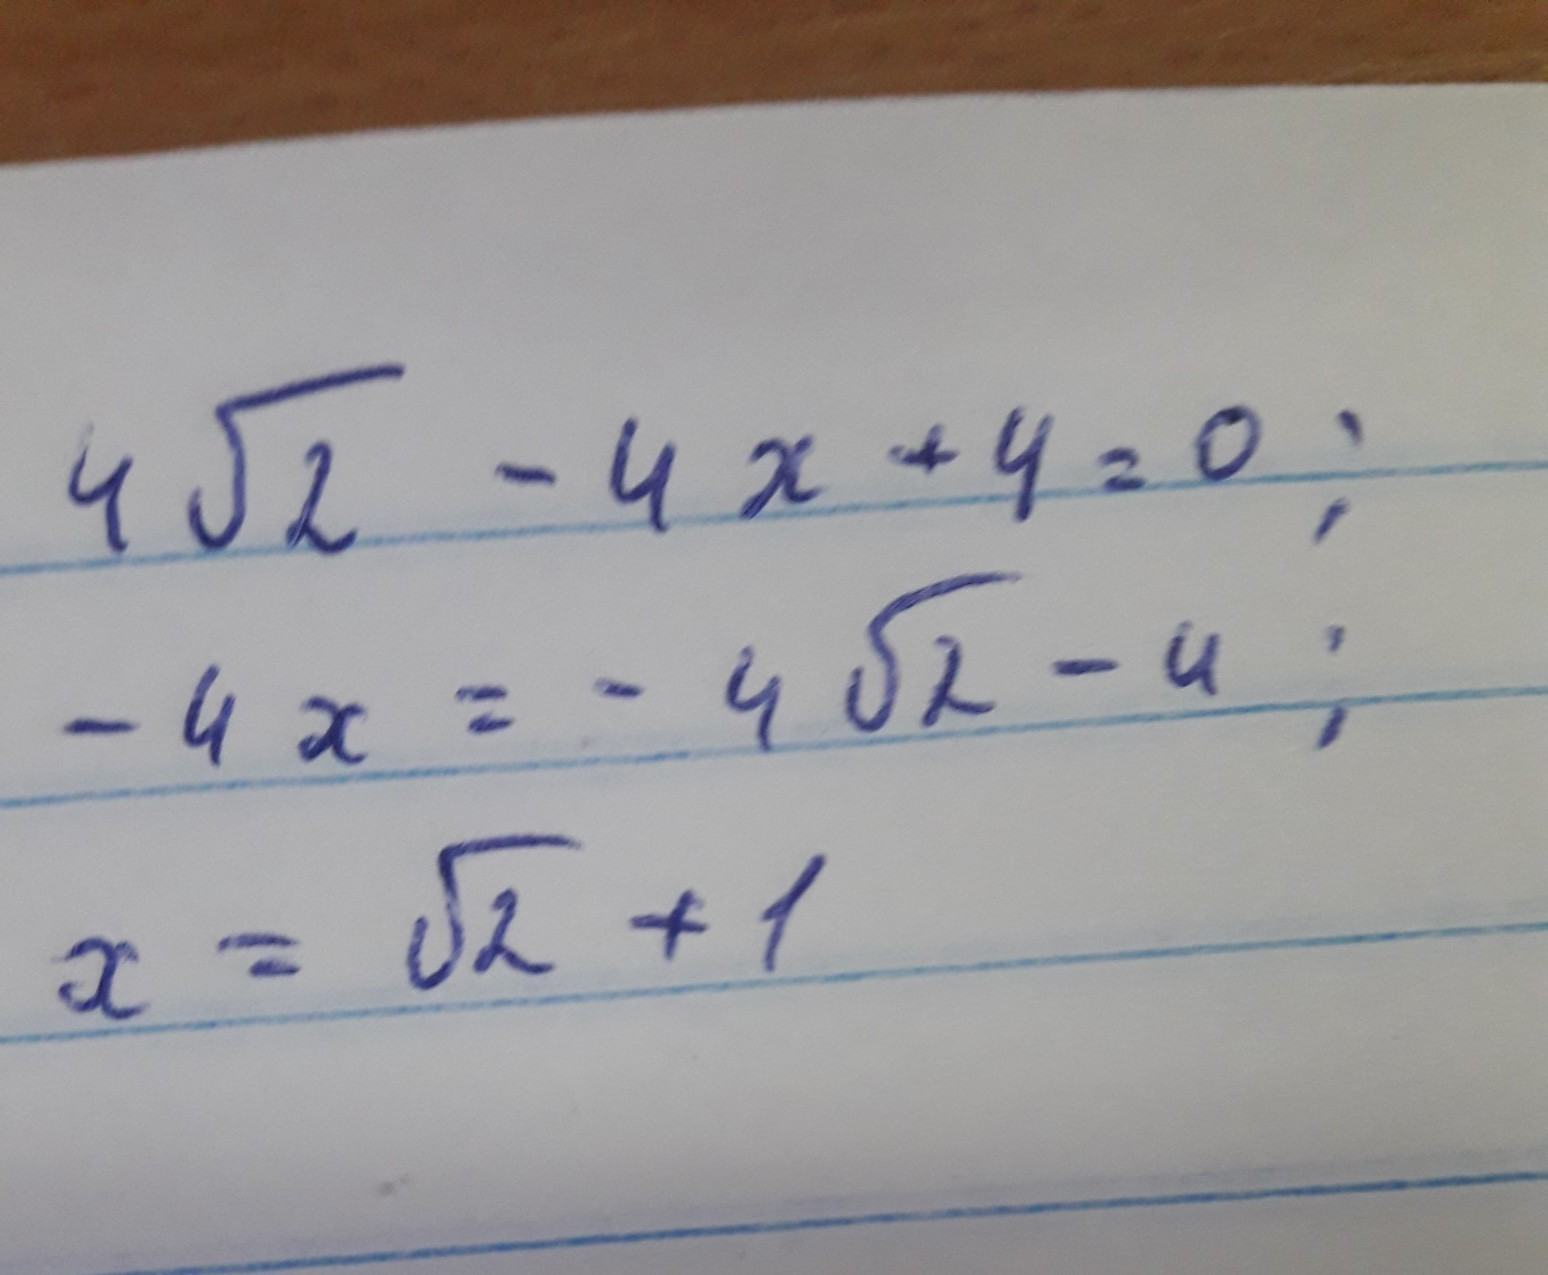 4√2 - 4x + 4 = 0;
- 4x = - 4√2 - 4;
x = √2 + 1